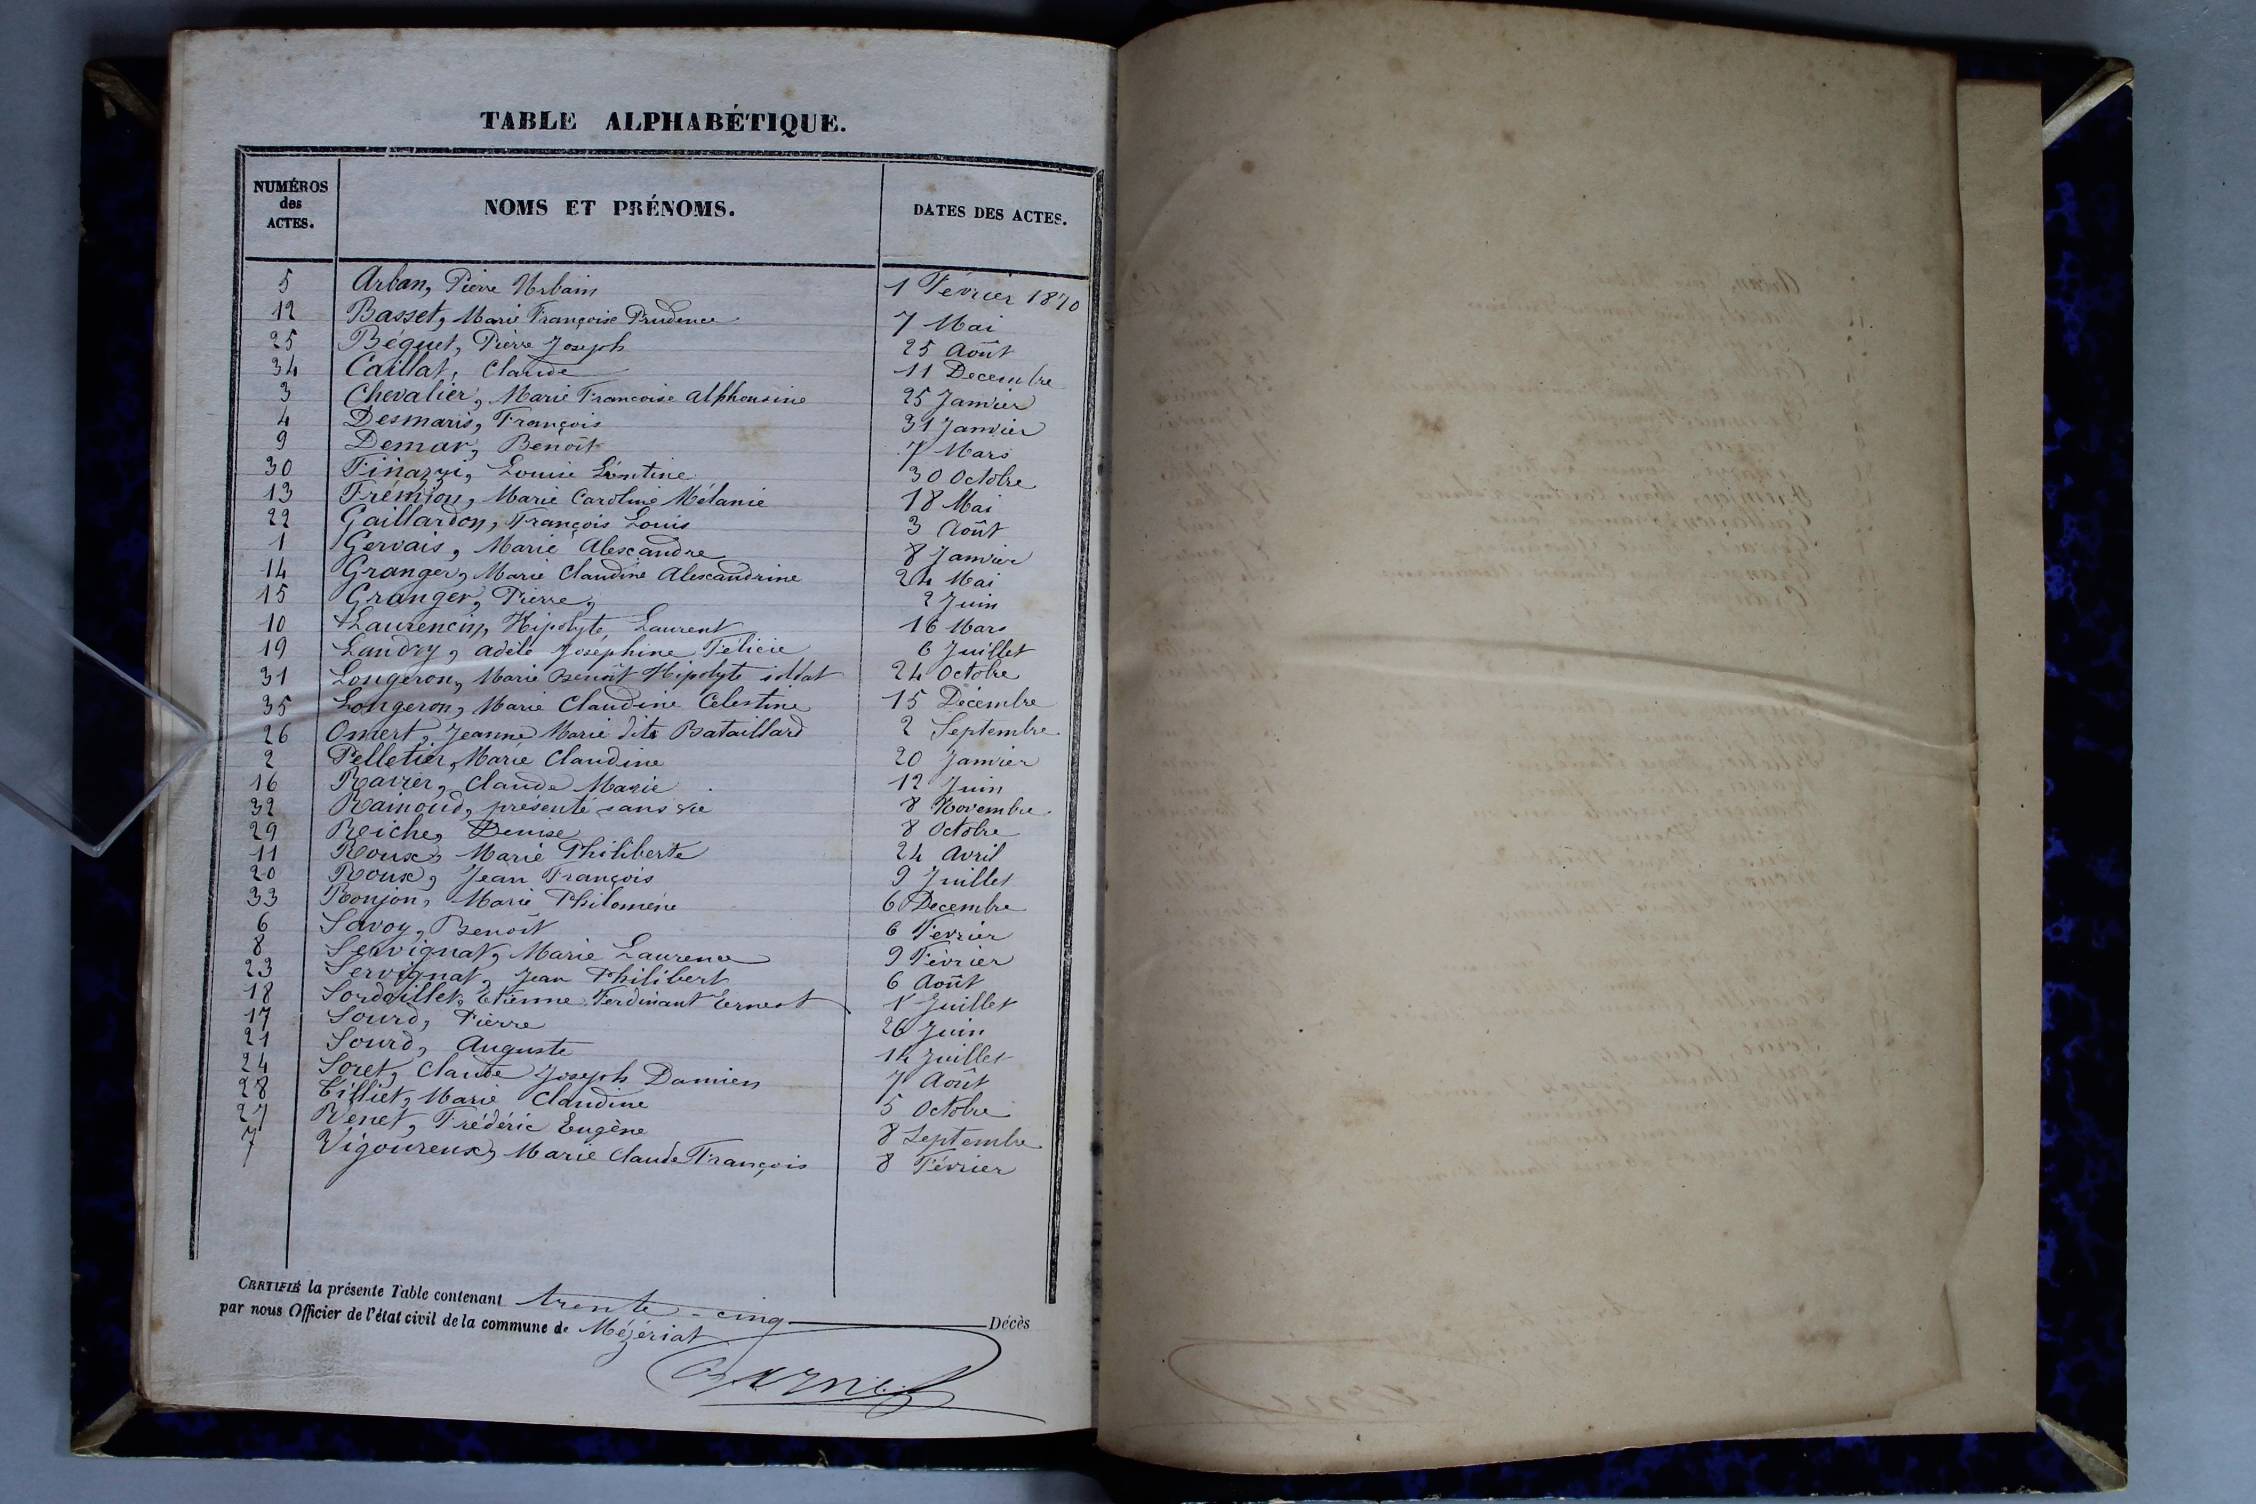 TABLE ALPHABÉTIQUE.
NUMÉROS des ACTES. NOMS ET PRÉNOMS. DATES DES ACTES.
5 Arban, Pierre Urbain 1 Février 1870
12 Basset, Marie Françoise Prudence 7 Mai
25 Béguet, Pierre Joseph 25 Août
34 Caillat, Claude 11 Decembre
3 Chevalier, Marie Francoise Alphonsine 25 Janvier
4 Desmaris, François 31 Janvier
9 Demar, Benoît 7 Mars
30 Finazzi, Louise Léontine 30 Octobre
13 Frémion, Marie Caroline Mélanie 18 Mai
22 Gaillardon, François Louis 3 Août
1 Gervais, Marie Alexandre 8 Janvier
14 Granger, Marie Claudine Alexandrine 24 Mai
15 Granger, Pierre, 2 Juin
10 Laurencin, Hipolyte, Laurent 16 Mars
19 Landry, Adèle Joséphine Félicie 6 Juillet
31 Longeron, Marie Benoît Hipolyte soldat 24 Octobre
35 Longeron, Marie Claudine Celestine 15 Décembre
26 Omert, Jeanne Marie dite Bataillard 2 Septembre
2 Pelletier, Marie Claudine 20 Janvier
16 Ravier, Claude Marie 12 Juin
32 Rainoud, présenté sans vie 8 Novembre
29 Reiche, Denise 8 Octobre
11 Roux, Marie Philiberte 24 Avril
20 Roux, Jean François 9 Juillet
33 Ronjon, Marie Philomène 6 Decembre
6 Savoy, Benoît 6 Fevrier
8 Servignat, Marie Laurence 9 Février
23 Servignat, Jean Philibert 6 Août
18 Sordoillet, Etienne Ferdinant Ernest 1 Juillet
17 Sourd, Pierre 26 Juin
21 Sourd, Auguste 14 Juillet
24 Soret, Claude Joseph Damien 7 Août
28 Tilliet, Marie Claudine 5 Octobre
27 Venet, Frédéric Eugène 8 Septembre
7 Vigoureux, Marie Claude François 8 Février
CERTIFIÉ la présente Table contenant trente-cinq Décès
par nous Officier de l'état civil de la commune de Mézériat